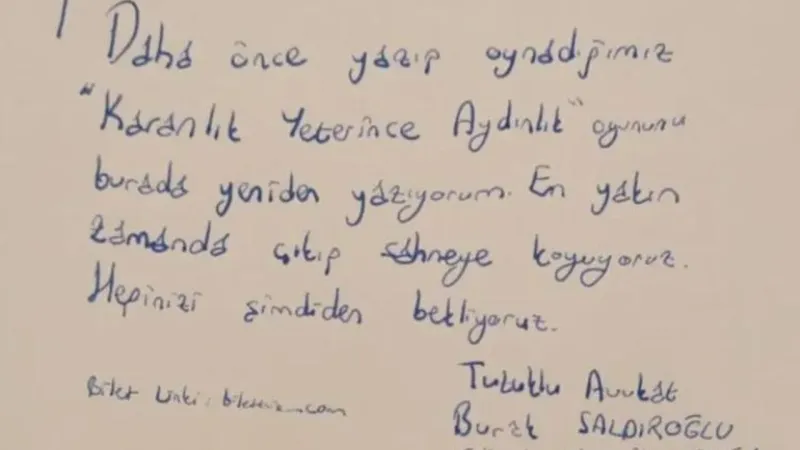 Daha önce yazıp oynadığımız
"Karanlık Yeterince Aydınlık" oyununu
burada yeniden yazıyorum. En yakın
zamanda çıkıp sahneye koyuyoruz.
Hepinizi şimdiden bekliyoruz.
Tutuklu Avukat
Bilet Linki:
Burak SALDIROĞLU